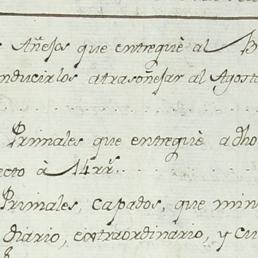 Añejos que entreguè al B
nducirlos atrasoñejar al Agost
Primales que entreguè adho
ecto à 14 rr.^s
Primales, capados, que min
diario, extraordinario, y cu